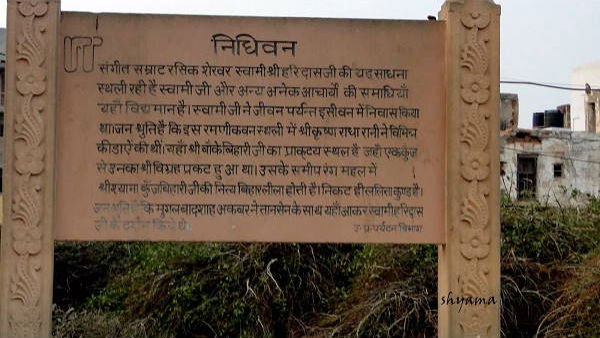 निधिवन
संगीत सम्राट रसिक शेखर स्वामी श्री हरिदासजी की यह साधना
स्थली रही है स्वामी जी और अन्य अनेक आचार्यो की समाधियाँ
यहाँ विद्यमान है। स्वामी जी ने जीवन पर्यन्त इसी वन में निवास किया
था। जन श्रुति है कि इस रमणीक वन स्थली में श्री कृष्ण राधा रानी ने विभिन्न
क्रीडाऐं की थीं। यही श्री बाँके बिहारी जी का प्राकट्य स्थल है जहाँ एक कुंज
से उनका श्री विग्रह प्रकट हुआ था। उसके समीप रंग महल में
श्री श्यामा कुँजबिहारी जी की नित्य बिहार लीला होती है। निकट ही ललिता कुण्ड है।
जन श्रुति है कि मुगल बादशाह अकबर ने तानसेन के साथ यहाँ आकर स्वामी हरिदास
जी के दर्शन किये थे।
उ० प्र० पर्यटन विभाग
shyama